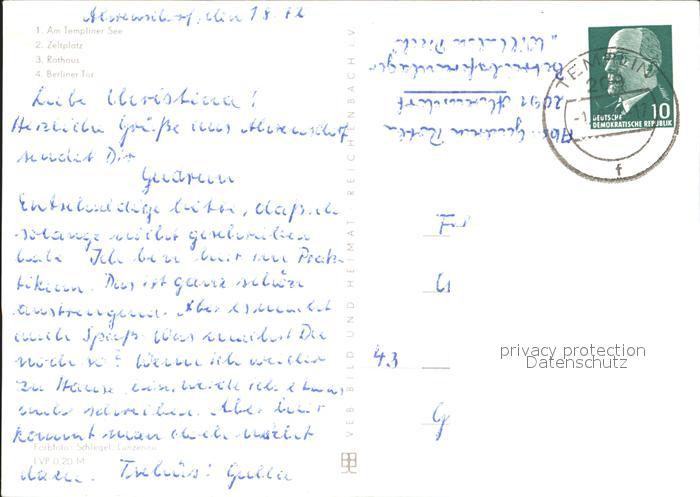 Ahrensdorf, den
1. Am Templiner See
2. Zeltplatz
3. Rathaus
4. Berliner Tor
Liebe Christina!
Herzliche Grüße aus Ahrensdorf
sendet Dir
Gudrun
Entschuldige bitte, daß ich
solange nicht geschrieben
hab. Ich bin hier im Prak-
tikum. Das ist ganz schön
anstrengend. Aber es macht
auch Spaß. Was machst Du
noch so? Wenn ich wieder
zu Hause bin, werde ich etwas
mehr schreiben. Aber hier
kommt man doch nicht
dazu. Tschüs!
Farbfoto: Schlegel,
EVP 0,20 M
VEB BILD UND HEIMAT REICHENBACH I. V.
Abs. Gudrun
2091 Ahrensdorf
Betriebsferienlager
"Wilhelm Pieck"
TEMPLIN
209
f
10
DEUTSCHE
DEMOKRATISCHE REPUBLIK
43
G
privacy protection
Datenschutz